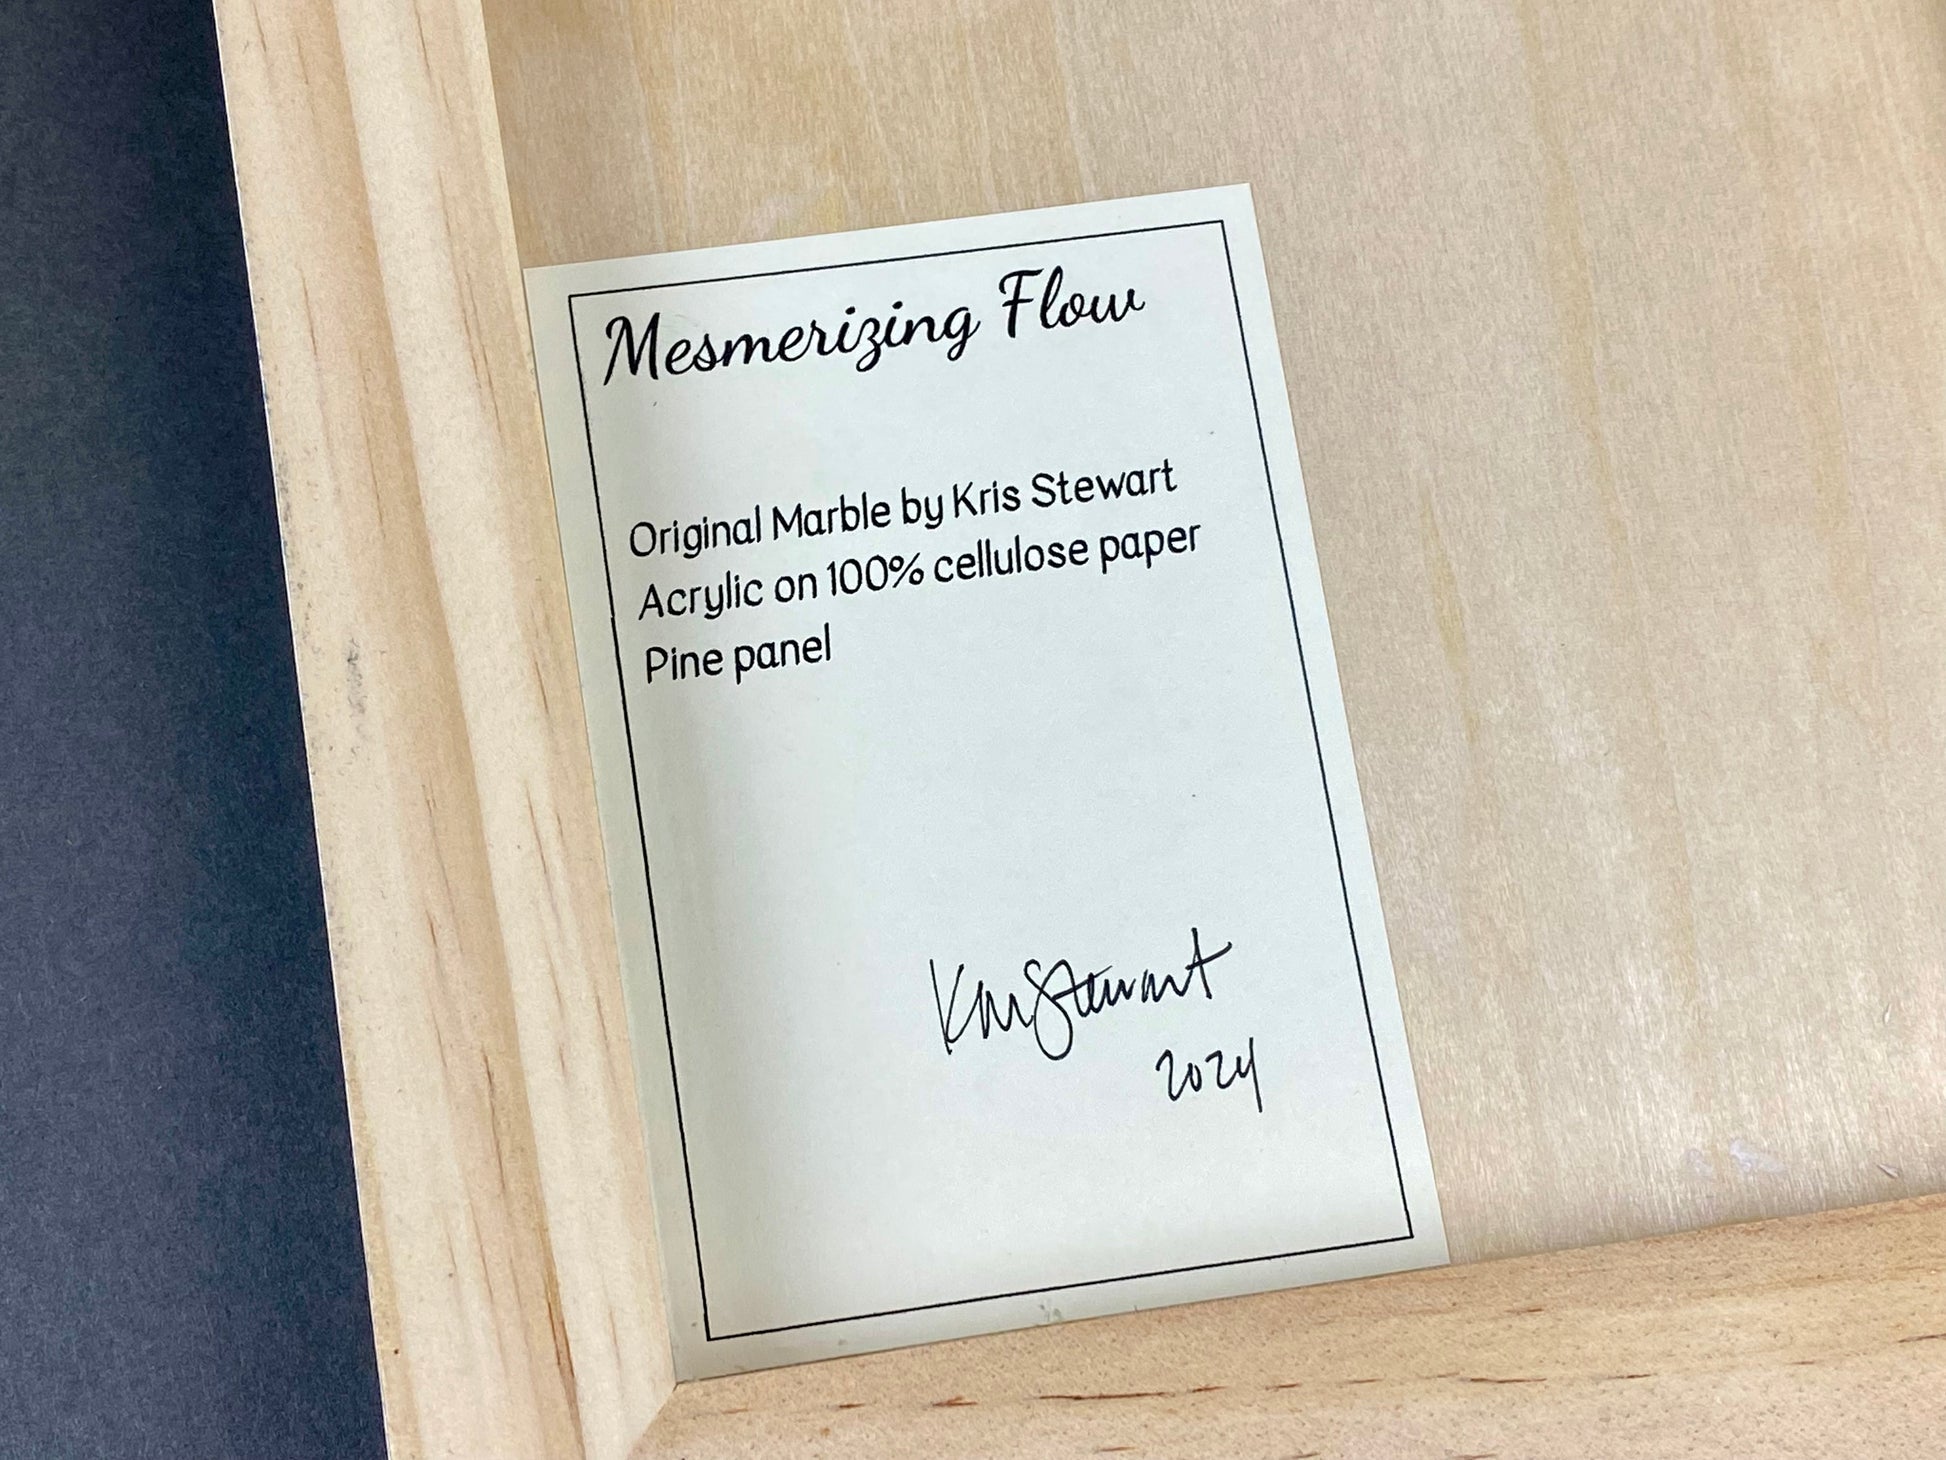 Mesmerizing Flow
Original Marble by Kris Stewart
Acrylic on 100% cellulose paper
Pine panel
Kris Stewart
2024